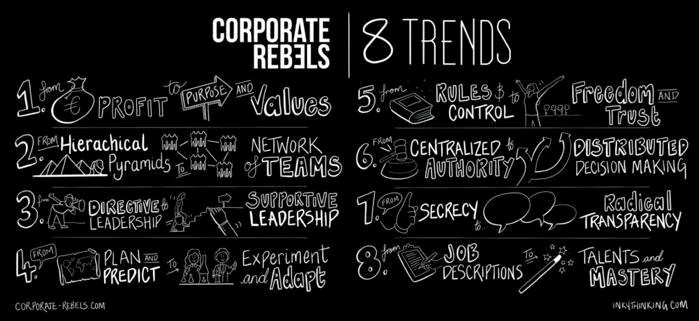 CORPORATE
REBELS
8 TRENDS
1. from PROFIT to PURPOSE AND Values
2. FROM Hierachical
Pyramids TO NETWORK
of TEAMS
3. from DIRECTIVE to SUPPORTIVE
LEADERSHIP LEADERSHIP
4. FROM PLAN AND
PREDICT TO Experiment
and Adapt
5. from RULES & to Freedom AND
CONTROL Trust
6. FROM CENTRALIZED to DISTRIBUTED
AUTHORITY DECISION MAKING
7. FROM SECRECY to Radical
TRANSPARENCY
8. from JOB
DESCRIPTIONS TO TALENTS and
MASTERY
CORPORATE-REBELS.COM
INKYTHINKING.COM